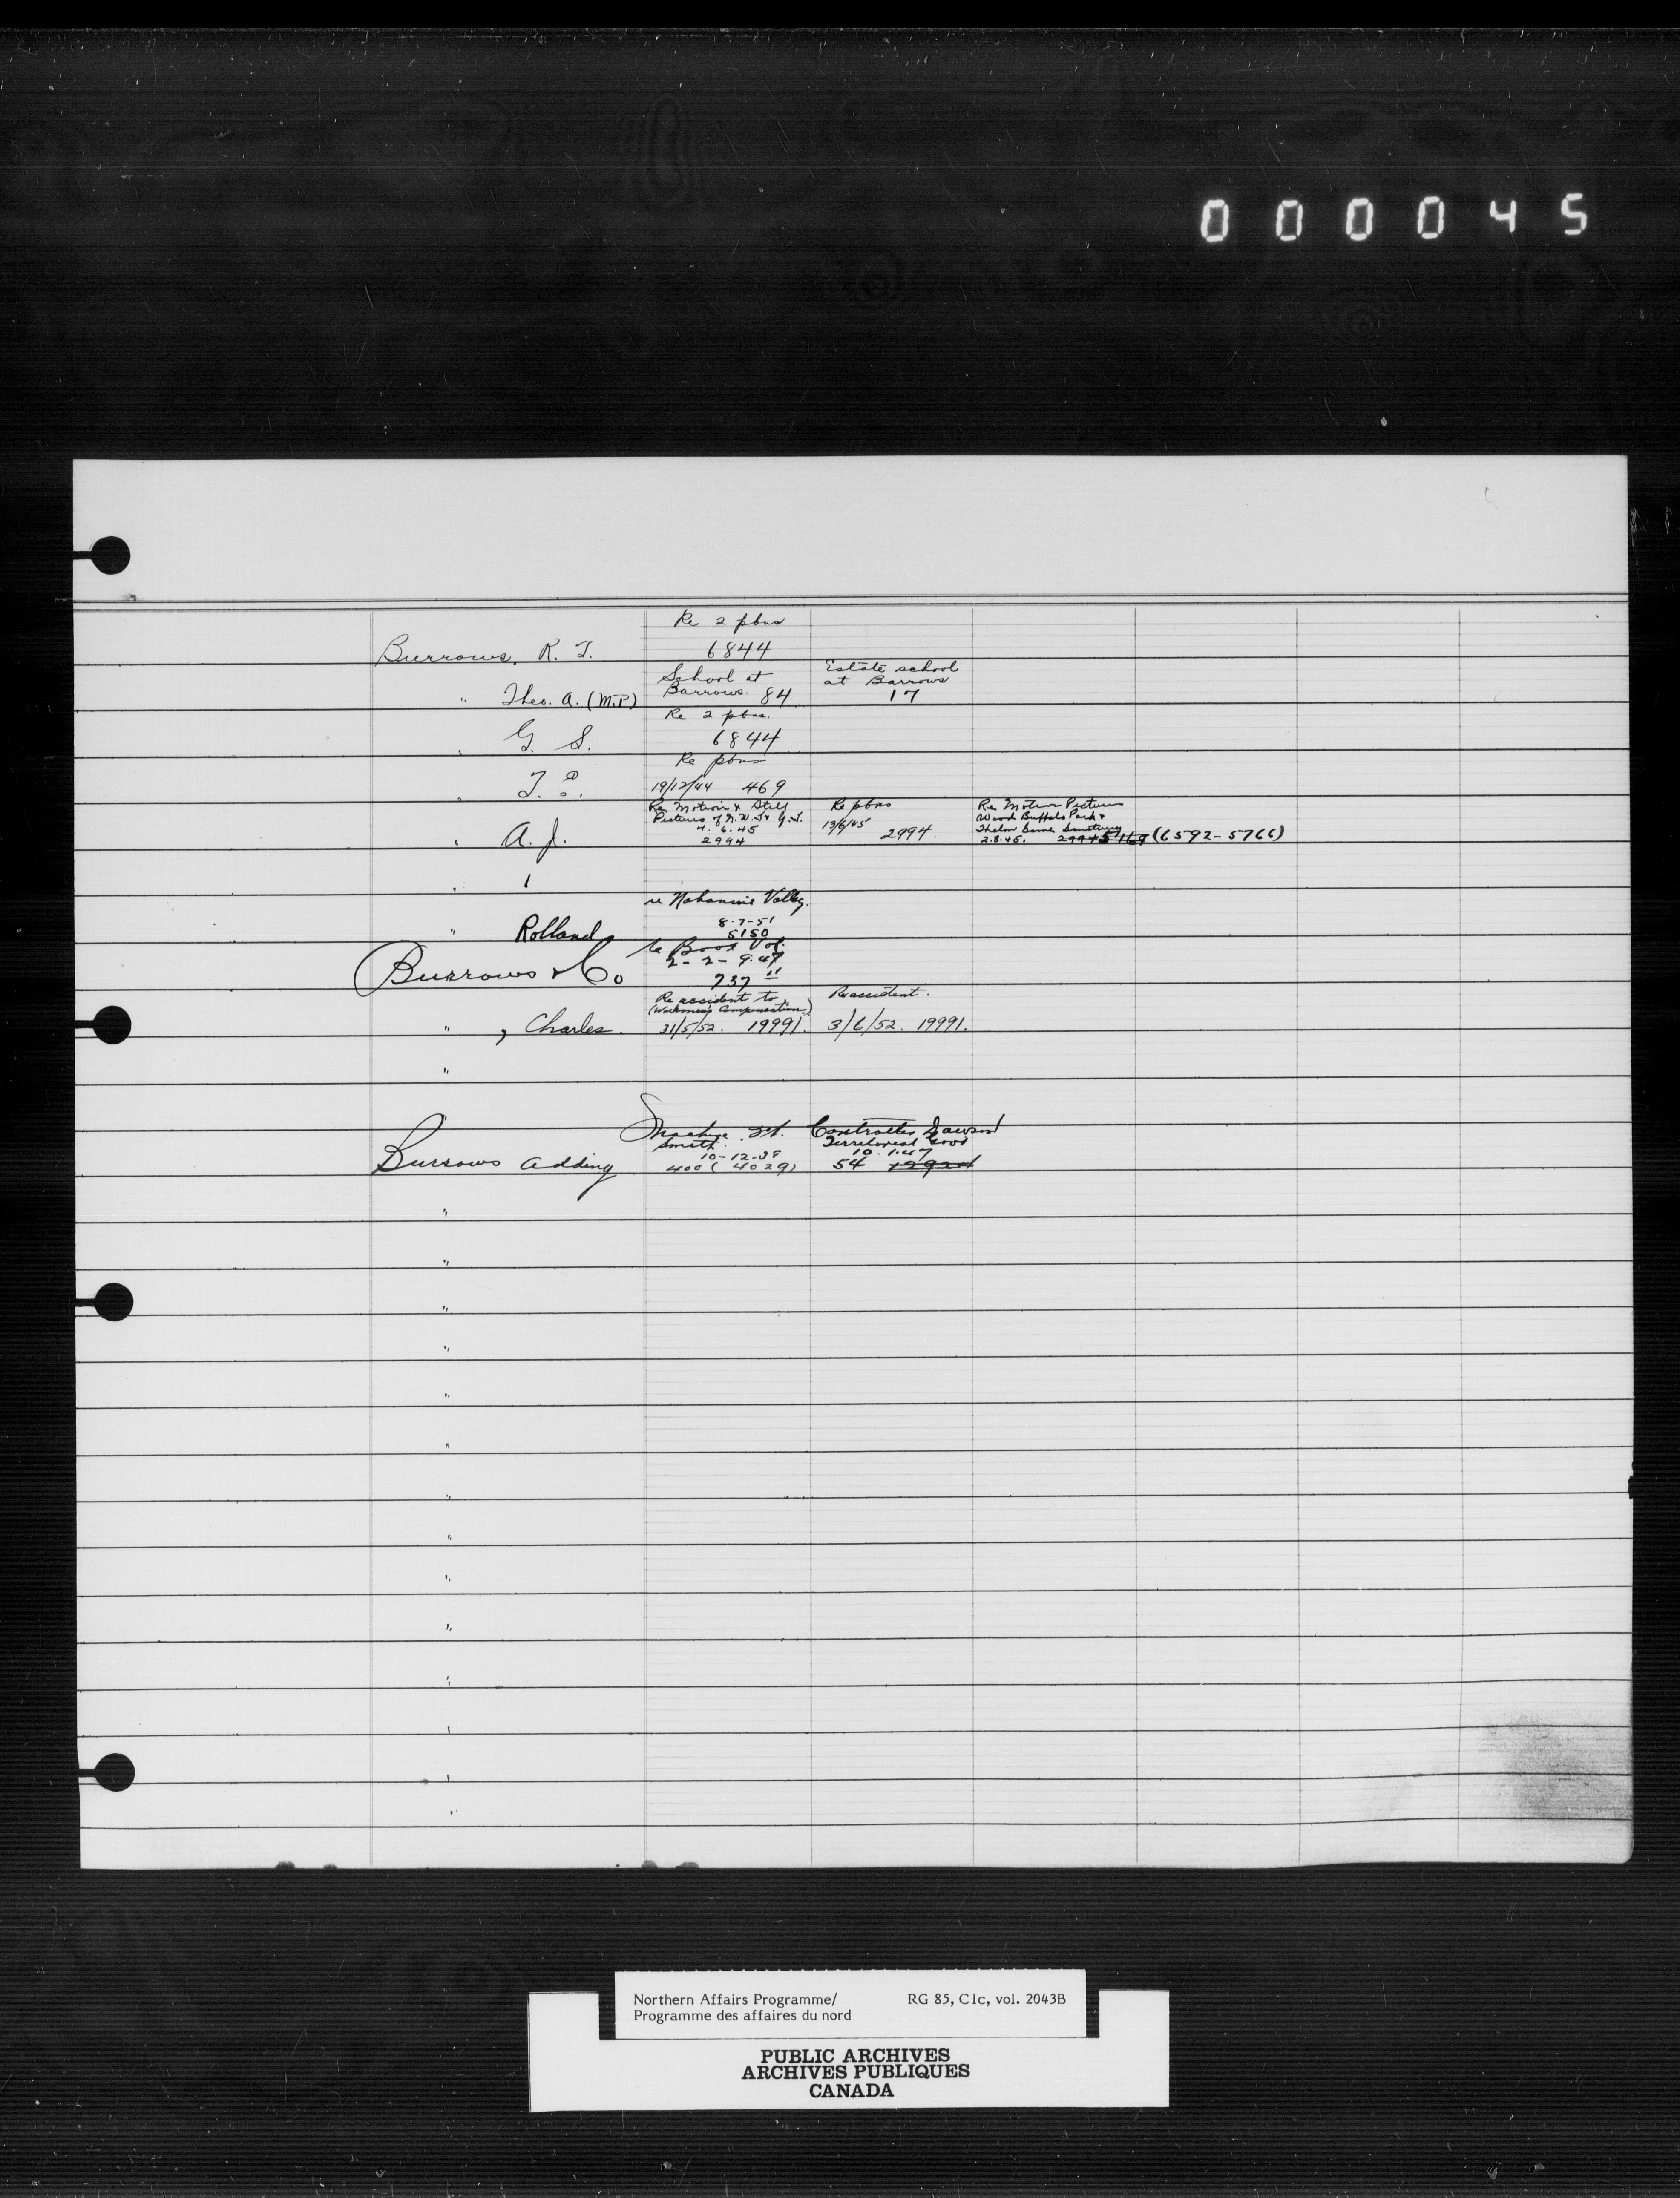 000045
Re 2 pbns
Burrows, R. T. 6844
School at Estate school
Barrows. at Barrows
" Theo. A. (M.P) 84 17
Re 2 pbns.
" G. S. 6844
Re pbns
" T. 19/12/44 469
Re Motion & Still Re pbns Re Motion Pictures
Pictures of N.W.T & Y.T. 13/6/45 Wood Buffalo Park &
4.6.45 Thelon Game Sanctuary
" A. J. 2994 2994. 2.8.45. (6592-5766)
"
re Nahannie Valley.
8-7-51
" Rolland 5150
Vol.
2-9-47
Burrows & Co 737
Re accident to Re accident.
(Workmen's Compensation)
" , Charles. 31/5/52. 19991. 3/6/52. 19991.
"
Machine Ft. Controller Dawson
Smith. Territorial Govt
10-12-38 10.1.47
Burrows Adding 400 (4029) 54
"
"
"
"
"
"
"
"
"
"
"
Northern Affairs Programme/ RG 85, C1c, vol. 2043B
Programme des affaires du nord
PUBLIC ARCHIVES
ARCHIVES PUBLIQUES
CANADA